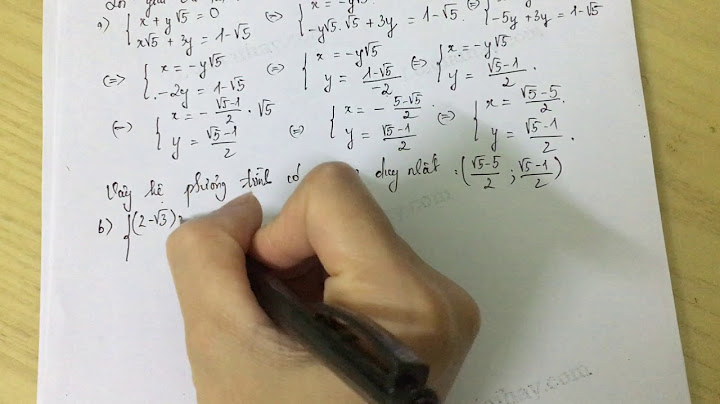 a) { x + y√5 = 0 (=) { x = -y√5 (=) { x = -y√5
x√5 + 3y = 1-√5 -y√5.√5 + 3y = 1-√5. -5y + 3y = 1-√5
(=>) { x = -y√5 (=) { x = -y√5 (=) { x = -y√5
-2y = 1-√5 y = (1-√5)/-2 y = (√5-1)/2.
(=) { x = -(√5-1)/2 . √5 (=) { x = -(5-√5)/2. (=) { x = (√5-5)/2.
y = (√5-1)/2 y = (√5-1)/2 y = (√5-1)/2.
Vậy hệ phương trình có duy nhất : ((√5-5)/2 ; (√5-1)/2)
b) { (2-√3)